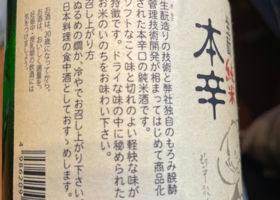 純米
本辛
生酛造りの技術と弊社独自のもろみ醗酵
管理技術開発が相まってはじめて商品化
された本辛口の純米酒です。
つなく味と切れのよい軽快な味が
特徴です。ドライな味の中に秘められた
お米のいのちをお味わい下さい。
召し上がり方
ぬるめの燗か、冷やでお召し上がり下さい
日本料理の食中酒としておすゝめします。
お酒は、20歳になってから。
お酒は、おいしく適量を。
妊娠中・授乳期の飲酒には
気をつけましょう
4 986209